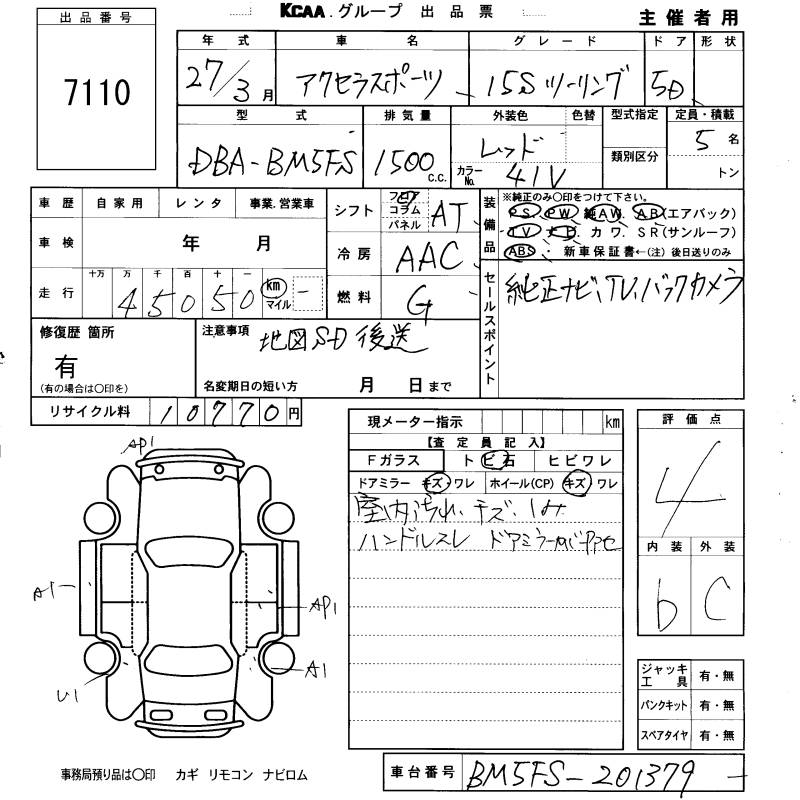 KCAA.グループ 出品票
主催者用
出品番号
7110
年式 車名 グレード ドア 形状
27/3月 アクセラスポーツ 15Sツーリング 5D
型式 排気量 外装色 色替 型式指定 定員・積載
類別区分
DBA-BM5FS 1500 c.c. レッド カラーNo. 41V 5名
トン
車歴 自家用 レンタ 事業.営業車
車検 年 月
走行 十万 万 千 百 十 一
45050 km マイル -
シフト フロア コラム パネル AT
冷房 AAC
燃料 G
装備品
※純正のみ〇印をつけて下さい。
PS. PW. 純AW. AB(エアバック)
TV. ナビ. カワ. SR(サンルーフ)
ABS. 新車保証書←(注)後日送りのみ
セールスポイント
純正ナビ、TV、バックカメラ
修復歴 箇所
有
(有の場合は〇印を)
注意事項
地図SD後送
名変期日の短い方 月 日まで
リサイクル料 10770円
現メーター指示 km
【査定員記入】
Fガラス ト ビ石 ヒビワレ
ドアミラー キズ・ワレ ホイール(CP) キズ・ワレ
室内汚れ、キズ、しみ
ハンドルスレ ドアミラー
評価点
4
内装 外装
b C
AP1
A1
AP1
A1
U1
ジャッキ工具 有・無
パンクキット 有・無
スペアタイヤ 有・無
事務局預り品は〇印 カギ リモコン ナビロム
車台番号 BM5FS-201379